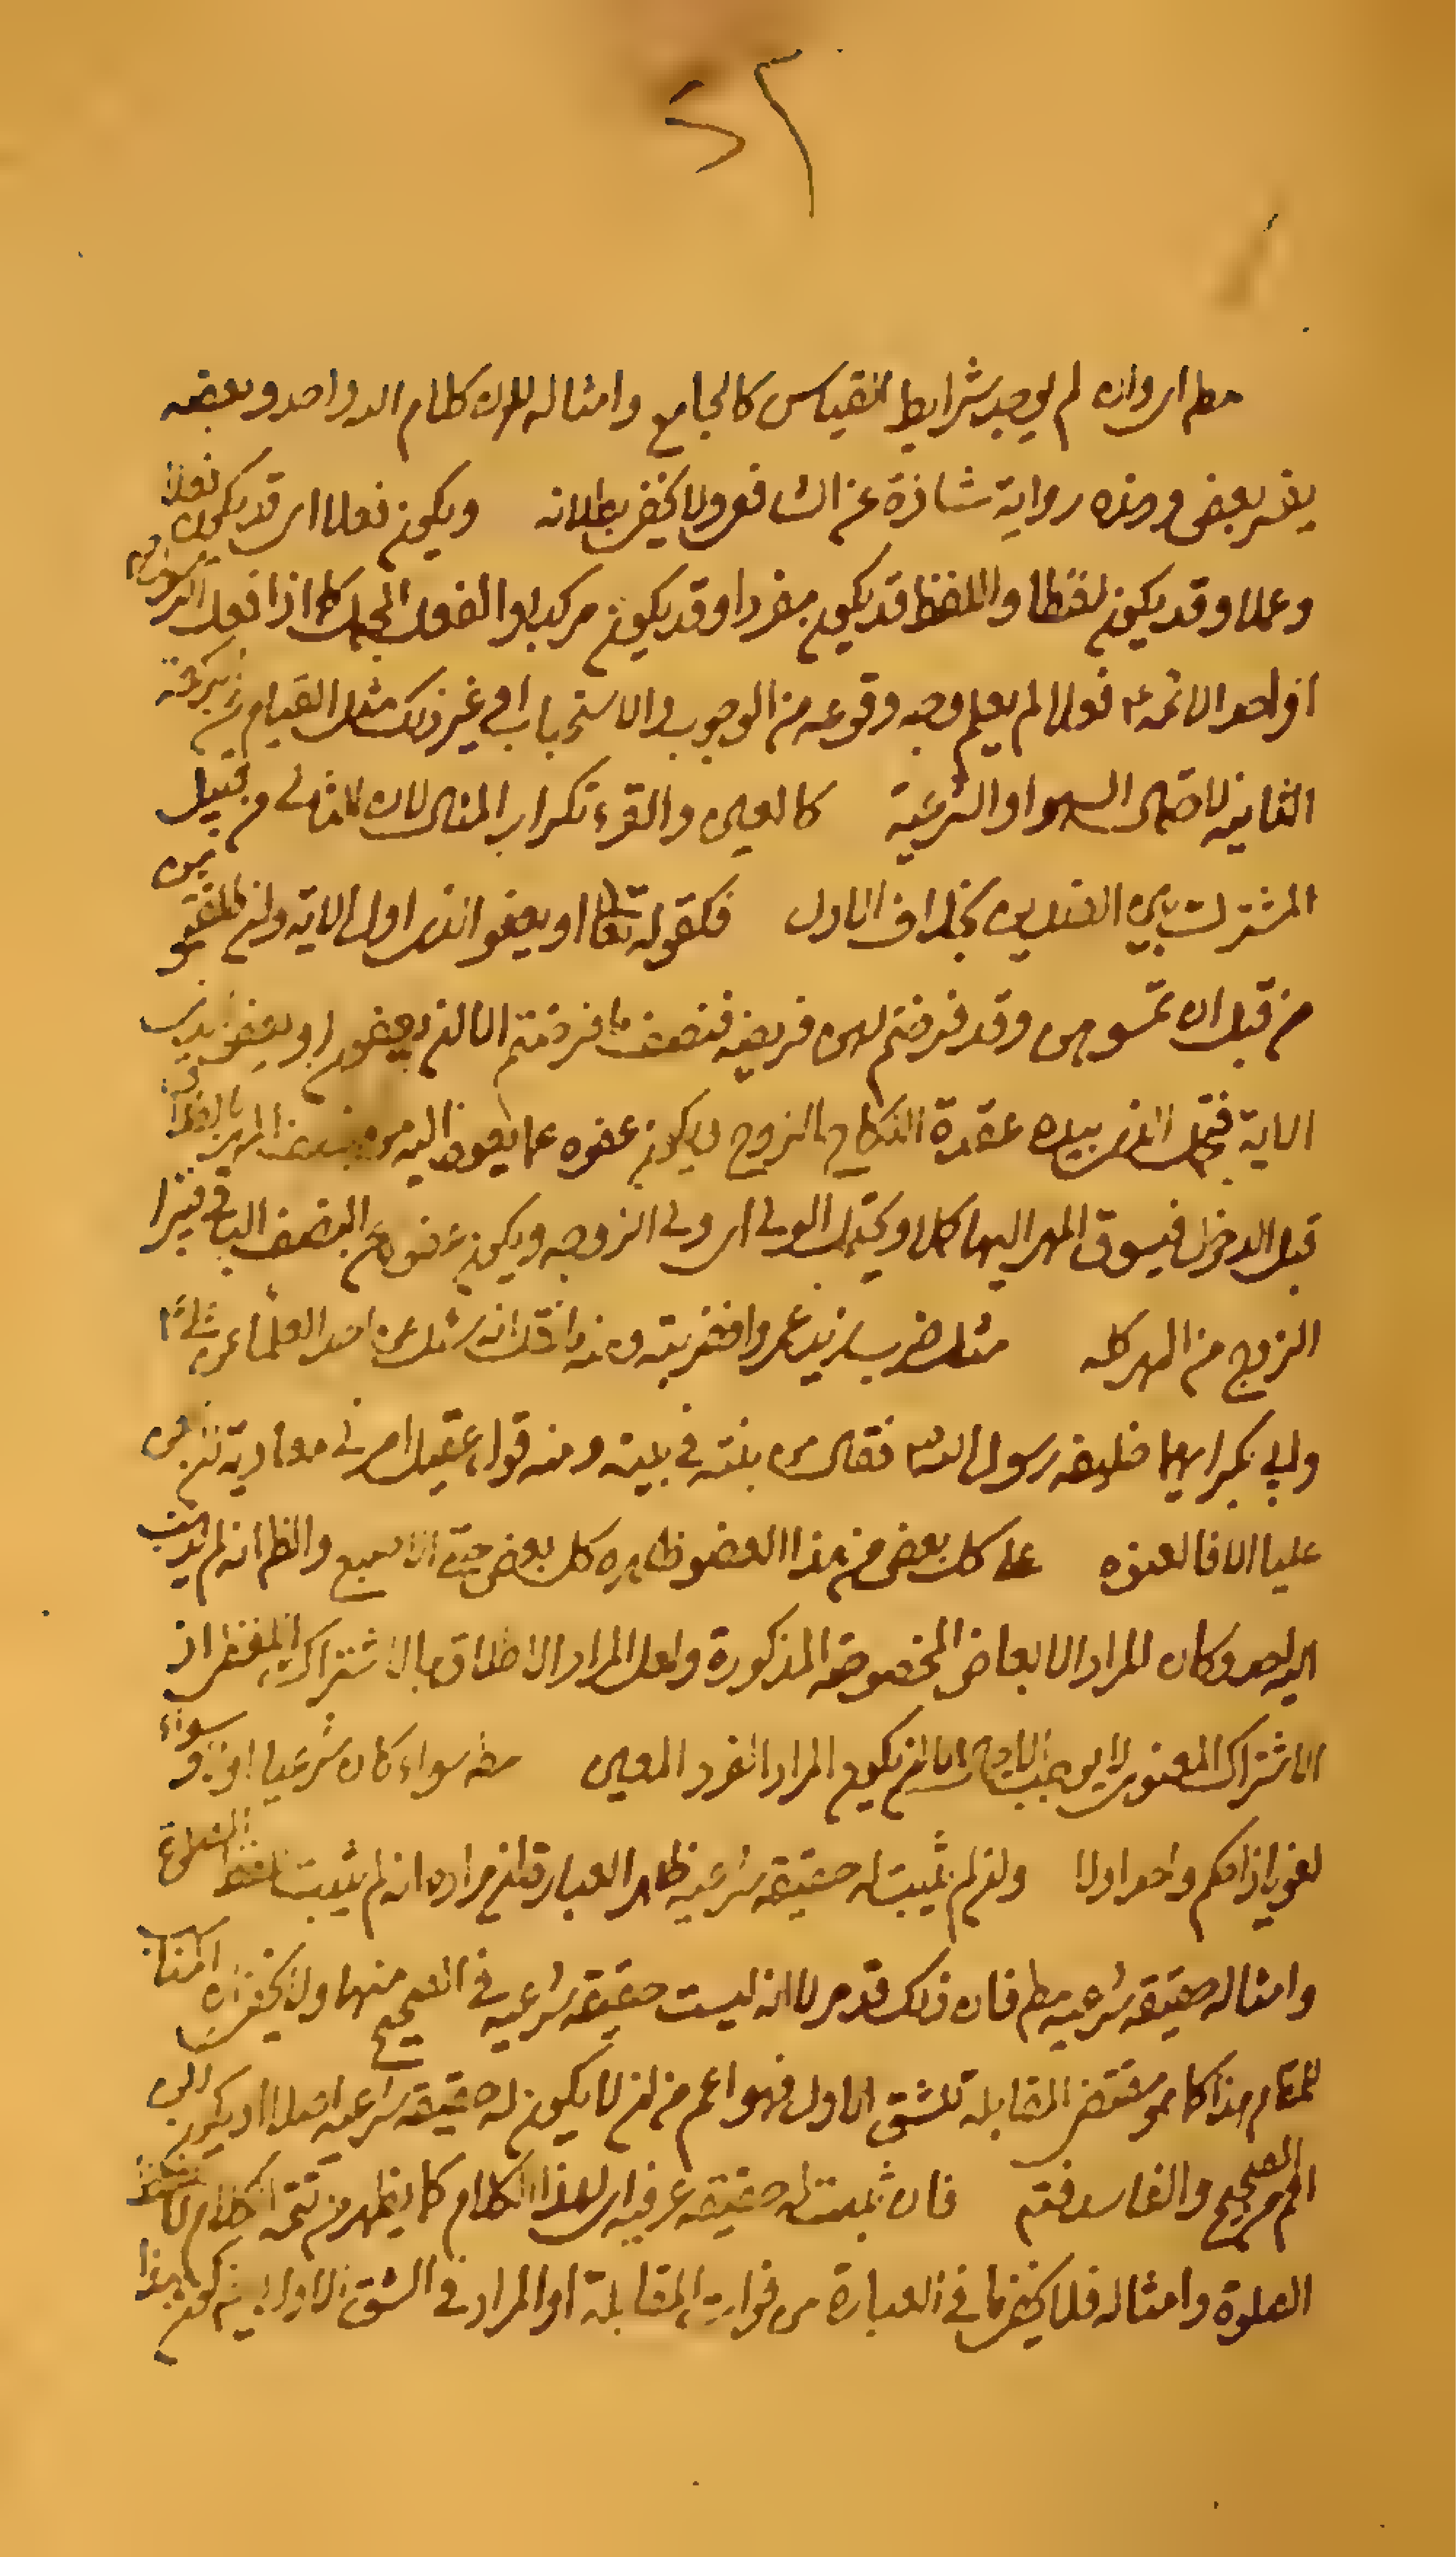 ۲۲
مطم اى وان لم يوجد شرايط القياس كالجامع وامثاله لان كلام الله واحد وبعضه
يفسر بعض وهذه رواية شاذة عن الشافعى ولا يخفى بطلانه ويكون فعلا اى قد يكون فعلا
وعملا وقد يكون لفظا واللفظ قد يكون مفردا وقد يكون مركبا والفعل المجمل كما اذا فعل الرسول ص
او احد الائمة ع فعلا لم يعلم وجه وقوعه من الوجوب والاستحباب او غير ذلك مثل القيام من الركعة
الثانية لاحتمال السهو او الشرعية كالعين والقرء تكرار المثال لان الثانى من قبيل
المشترك بين الضدين بخلاف الاول فكقوله تعا او يعفو الذى اول الاية وان طلقتموهن
من قبل ان تمسوهن وقد فرضتم لهن فريضة فنصف ما فرضتم الا ان يعفون او يعفو الذى
الاية فيحتمل الذى بيده عقدة النكاح الزوج ليكون عفوه عما يعود اليه من نصف المهر بالطلاق
قبل الدخول فيسوق المهر اليها كملا ويحتمل الولى اى ولى الزوجة ويكون عفوه عن النصف الباقى فيبرا
الزوج من المهر كله مثل ضرب زيد عمروا فضربته ومنه ما نقل انه سئل عن احد العلماء عن على ع
وابى بكر ايهما خليفة رسول الله ص فقال من بنته فى بيته ومنه قول عقيل امرنى معاوية ان العن
عليا الا فالعنوه على كل بعض من هذا العضو ظاهره كل بعض حتى الاصبع والظ انه لم يذهب
اليه احد وكان المراد الابعاض المخصوصة المذكورة ولعل المراد الاطلاق بالاشتراك اللفظى اذ
الاشتراك المعنوى لا يوجب الاجمال الا ان يكون المراد الفرد المعين مطه سواء كان شرعيا او لا وسواء
لغويا ذا حكم واحد او لا وان لم يثبت له حقيقة شرعية ظاهر العبارة ان مراده انه لم يثبت للفظ الصلوة
وامثاله حقيقة شرعية مطم فان ذلك قد مر لا انه ليست حقيقة شرعية فى الصحيح منها ولا يخفى ان المناسب
للمقام هذا كما هو مقتضى المقابلة للشق الاول فهو اعم من ان لا يكون له حقيقة شرعية اصلا او يكون فى
الاعم من الصحيح والفاسد فتم فان ثبت له حقيقة عرفية اى لهذا الكلام كما يظهر من تتمة الكلام لا للفظ
الصلوة وامثاله فلا يخفى ما فى العبارة من فوات المقابلة او المراد فى الشق الاول ان يكون هذا